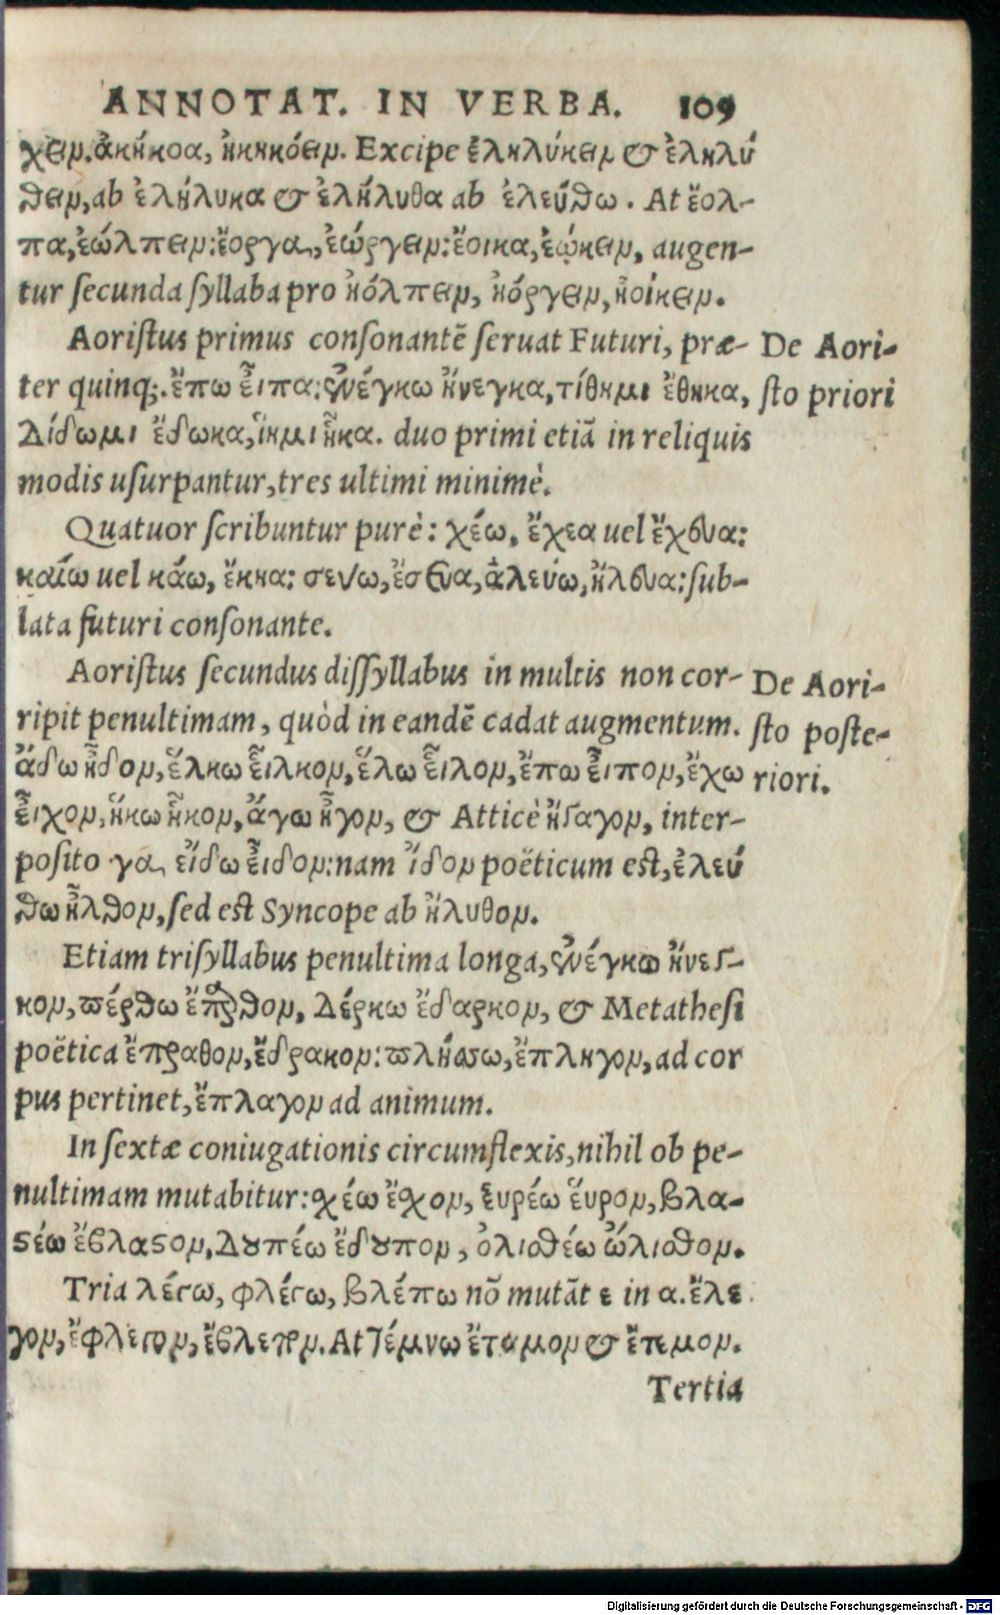 ANNOTAT. IN VERBA. 109
χειν. ἀκήκοα, ἠκηκόειν. Excipe ἐληλύκειν & ἐληλύ
θειν, ab ἐλήλυκα & ἐλήλυθα ab ἐλεύθω. At ἔολ-
πα, ἐώλπειν: ἔοργα, ἐώργειν: ἔοικα, ἐῴκειν, augen-
tur secunda syllaba pro ἠόλπειν, ἠόργειν, ἠοίκειν.
Aoristus primus consonantē seruat Futuri, præ-
ter quinq;. ἔπω εἶπα: ἐνέγκω ἤνεγκα, τίθημι ἔθηκα,
δίδωμι ἔδωκα, ἵημι ἧκα. duo primi etiā in reliquis
modis usurpantur, tres ultimi minimè.
De Aori-
sto priori
Quatuor scribuntur purè: χέω, ἔχεα uel ἔχευα:
καίω uel κάω, ἔκηα: σεύω, ἔσευα, ἀλεύω, ἤλευα: sub-
lata futuri consonante.
Aoristus secundus dissyllabus in multis non cor-
ripit penultimam, quòd in eandē cadat augmentum.
ἄδω ἦδον, ἕλκω εἷλκον, ἕλω εἷλον, ἔπω εἶπον, ἔχω
εἶχον, ἥκω ἧκον, ἄγω ἦγον, & Atticè ἤγαγον, inter-
posito γα, εἴδω εἶδον: nam ἴδον poëticum est, ἐλεύ
θω ἦλθον, sed est Syncope ab ἤλυθον.
De Aori-
sto poste-
riori.
Etiam trisyllabus penultima longa, ἐνέγκω ἤνεγ-
κον, πέρθω ἔπαρθον, δέρκω ἔδαρκον, & Metathesi
poëtica ἔπραθον, ἔδρακον: πλήσσω, ἔπληγον, ad cor
pus pertinet, ἔπλαγον ad animum.
In sextæ coniugationis circumflexis, nihil ob pe-
nultimam mutabitur: χέω ἔχον, εὑρέω εὗρον, βλα-
στέω ἔβλαστον, δουπέω ἔδουπον, ὀλισθέω ὤλισθον.
Tria λέγω, φλέγω, βλέπω nō mutāt ε in α. ἔλε
γον, ἔφλεγον, ἔβλεπον. At τέμνω ἔταμον & ἔτεμον.
Tertia
Digitalisierung gefördert durch die Deutsche Forschungsgemeinschaft - DFG